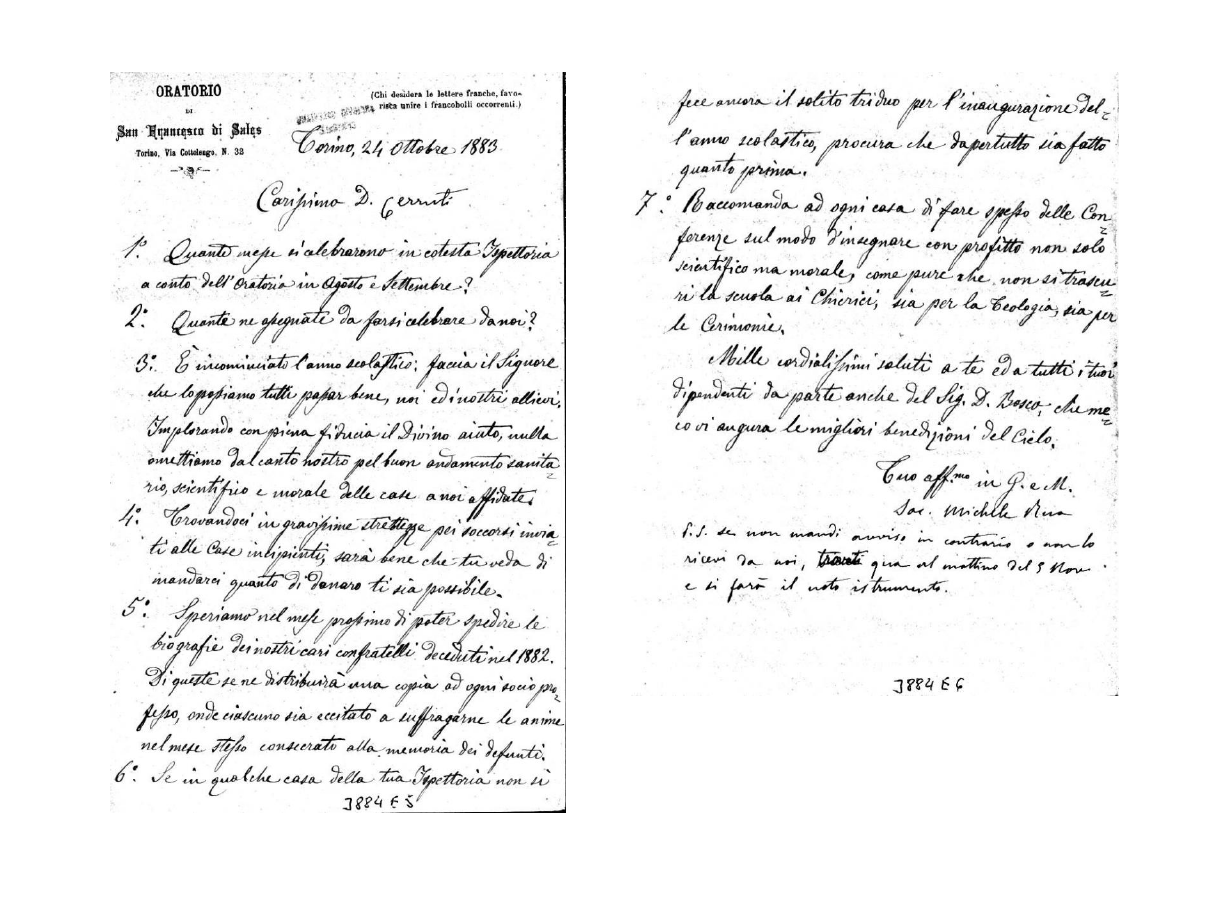 ORATORIO
DI
San Francesco di Sales
Torino, Via Cottolengo, N. 32
(Chi desidera le lettere franche, favo-
risca unire i francobolli occorrenti.)
Torino, 24 Ottobre 1883
Carissimo D. Cerruti
1º Quante messe si celebrarono in cotesta Ispettoria
a conto dell'Oratorio in Agosto e Settembre?
2º Quante ne assegnate da farsi celebrare da noi?
3º È incominciato l'anno scolastico: faccia il Signore
che lo possiamo tutti passar bene, noi ed i nostri allievi.
Implorando con piena fiducia il Divino aiuto, nulla
omettiamo dal canto nostro pel buon andamento sanita=
rio, scientifico e morale delle case a noi affidate.
4º Trovandoci in gravissime strettezze pei soccorsi invia=
ti alle Case incipienti, sarà bene che tu veda di
mandarci quanto di danaro ti sia possibile.
5º Speriamo nel mese prossimo di poter spedire le
biografie dei nostri cari confratelli deceduti nel 1882.
Di queste se ne distribuirà una copia ad ogni socio pro=
fesso, onde ciascuno sia eccitato a suffragarne le anime
nel mese stesso consecrato alla memoria dei defunti.
6º Se in qualche casa della tua Ispettoria non si
J884 E 5
fece ancora il solito triduo per l'inaugurazione del=
l'anno scolastico, procura che dapertutto sia fatto
quanto prima.
7º Raccomanda ad ogni casa di fare spesso delle Con=
ferenze sul modo d'insegnare con profitto non solo
scientifico ma morale, come pure che non si trascu=
ri la scuola ai Chierici, sia per la Teologia, sia per
le Cerimonie.
Mille cordialissimi saluti a te ed a tutti i tuoi
dipendenti da parte anche del Sig. D. Bosco, che me=
co vi augura le migliori benedizioni del Cielo.
Tuo aff.mo in G. e M.
Sac. Michele Rua
P.S. se non mandi avviso in contrario o non lo
ricevi da noi, qua al mattino del 5 Nov.
e si farà il noto istrumento.
J884 E 6